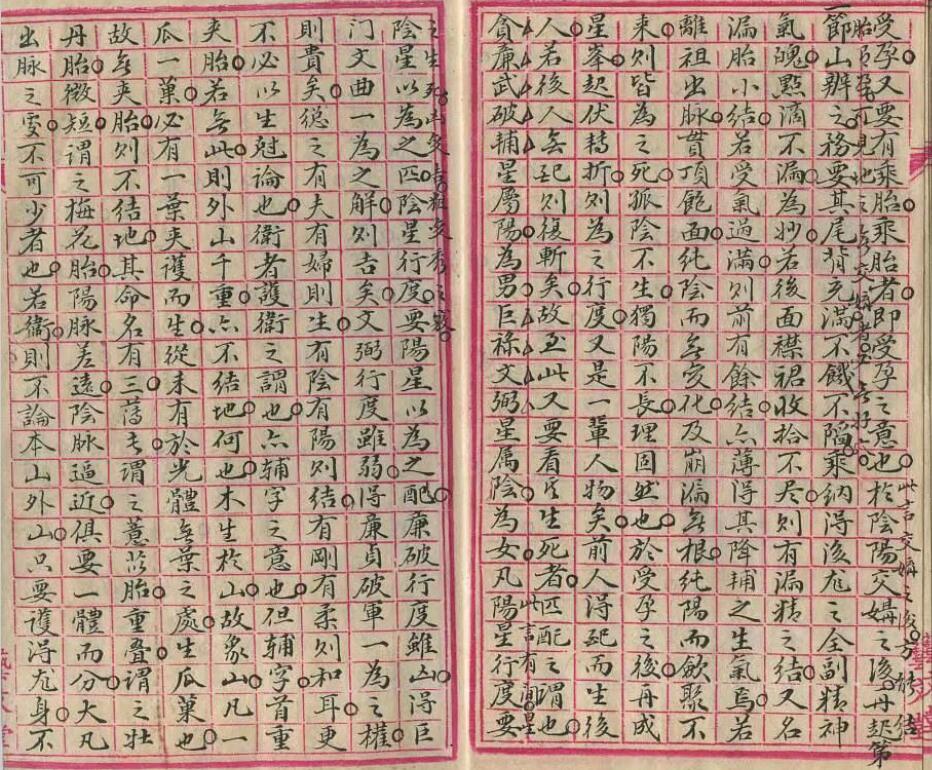 受孕又要有乘胎乘胎者即受孕之意也於陰陽交媾之後再起第
一節山辦之務要其尾背充滿不饑不陷乘納得後龙之全副精神
氣魄點滴不漏為妙若後面襟裙收拾不尽則有漏精之結又名
漏胎小結若受氣過滿則前有餘結亦薄得其降輔之生氣焉若
離祖出脉貫頂飽面純陰而無变化及崩漏無根純陽而歛聚不
来則皆為之死孤陰不生獨陽不長理固然也於受孕之後再成
星峯起伏轉折則為之行度又是一輩人物矣前人得配而生後
人若後人無配則復斬矣故至此又要看其生死者匹配之謂也
貪廉武破輔星屬陽為男巨祿文弼星属陰為女凡陽星行度要
此言有間星
陰星以為之匹陰星行度要陽星以為之配廉破行度雖凶得巨
门文曲一為之解則吉矣文弼行度雖弱得廉貞破軍一為之權
則貴矣總之有夫有婦則生有陰有陽則結有剛有柔則和耳更
不必以生尅論也衛者護衛之謂也亦輔字之意也但輔字首重
夹胎若無此則外山千重亦不結地何也木生於山故象山凡一
瓜一菓必有一葉夹護而生從未有於光體無葉之處生瓜菓也
故無夹胎則不結地其命名有三薄者謂之薏苡胎重叠謂之壮
丹胎微短謂之梅花胎陽脉差遠陰脉逼近俱要一體而分大凡
出脉之雯不可少者也若衛則不論本山外山只要護得龙身不